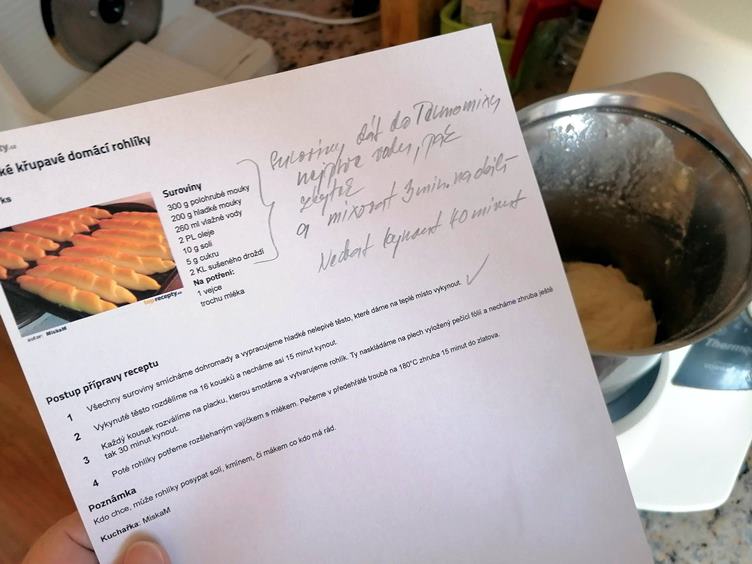 ty.cz
ké křupavé domácí rohlíky
ks
Suroviny
300 g polohrubé mouky
200 g hladké mouky
260 ml vlažné vody
2 PL oleje
10 g soli
5 g cukru
2 KL sušeného droždí
Na potření:
1 vejce
trochu mléka
Suroviny dát do Termomixu
nejprve vodu, pak
zbytek
a mixovat 3 min. na obilí
Nechat kynout 40 minut
toprecepty.cz
autor: MiskaM
Postup přípravy receptu
1 Všechny suroviny smícháme dohromady a vypracujeme hladké nelepivé těsto, které dáme na teplé místo vykynout.
2 Vykynuté těsto rozdělíme na 16 kousků a necháme asi 15 minut kynout.
3 Každý kousek rozválíme na placku, kterou smotáme a vytvarujeme rohlík. Ty naskládáme na plech vyložený pečící fólií a necháme zhruba ještě
tak 30 minut kynout.
4 Poté rohlíky potřeme rozšlehaným vajíčkem s mlékem. Pečeme v předehřáté troubě na 180°C zhruba 15 minut do zlatova.
Poznámka
Kdo chce, může rohlíky posypat solí, kmínem, či mákem co kdo má rád.
Kuchařka: MiskaM
Therm